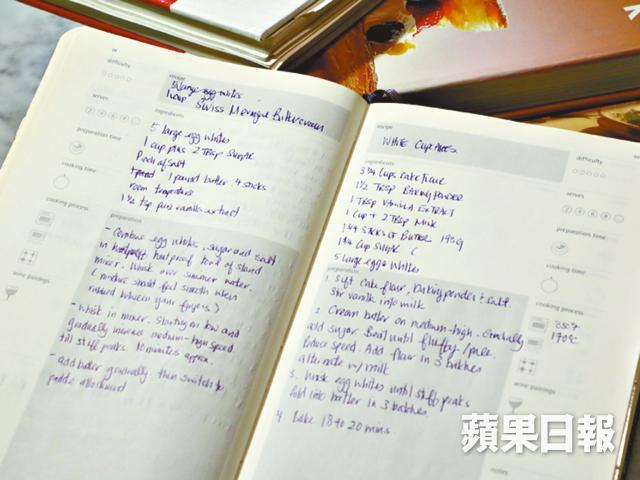 difficulty
serves
preparation time
cooking time
cooking process
wine pairings
recipe
5 large egg whites
Swiss Meringue Buttercream
ingredients
5 large egg whites
1 cup plus 2 Tbsp Sugar
Pinch of Salt
1 pound butter 4 sticks
room temperature
1½ tsp pure vanilla extract
preparation
- Combine egg whites, sugar and salt
in heatproof bowl of stand
mixer. Whisk over simmer water.
(mixture should feel smooth when
rubbed between your fingers)
- whisk in mixer. Starting on low and
gradually increase medium-high speed
till stiff peaks. 10 minutes approx.
- add butter gradually then switch to
paddle attachment
recipe
WHITE CUPCAKES
ingredients
3¼ Cups Cake Flour
1½ TBSP BAKING POWDER
1 TBSP VANILLA EXTRACT
1 Cup + 2 TBSP Milk
STICKS OF BUTTER 195G
1¾ Cup Sugar
5 large egg whites
preparation
1. Sift cake flour, baking powder + salt
Stir vanilla into milk
2. Cream butter on medium-high. Gradually
add sugar. Beat until fluffy/pale.
Reduce speed. Add flour in 3 batches
alternate w/ milk
3. Whisk egg whites until stiff peaks
Fold into batter in 3 batches
4. Bake 18 to 20 mins.
difficulty
serves
preparation time
cooking time
cooking process
350°F
170°C
wine pairings
notes
蘋果日報